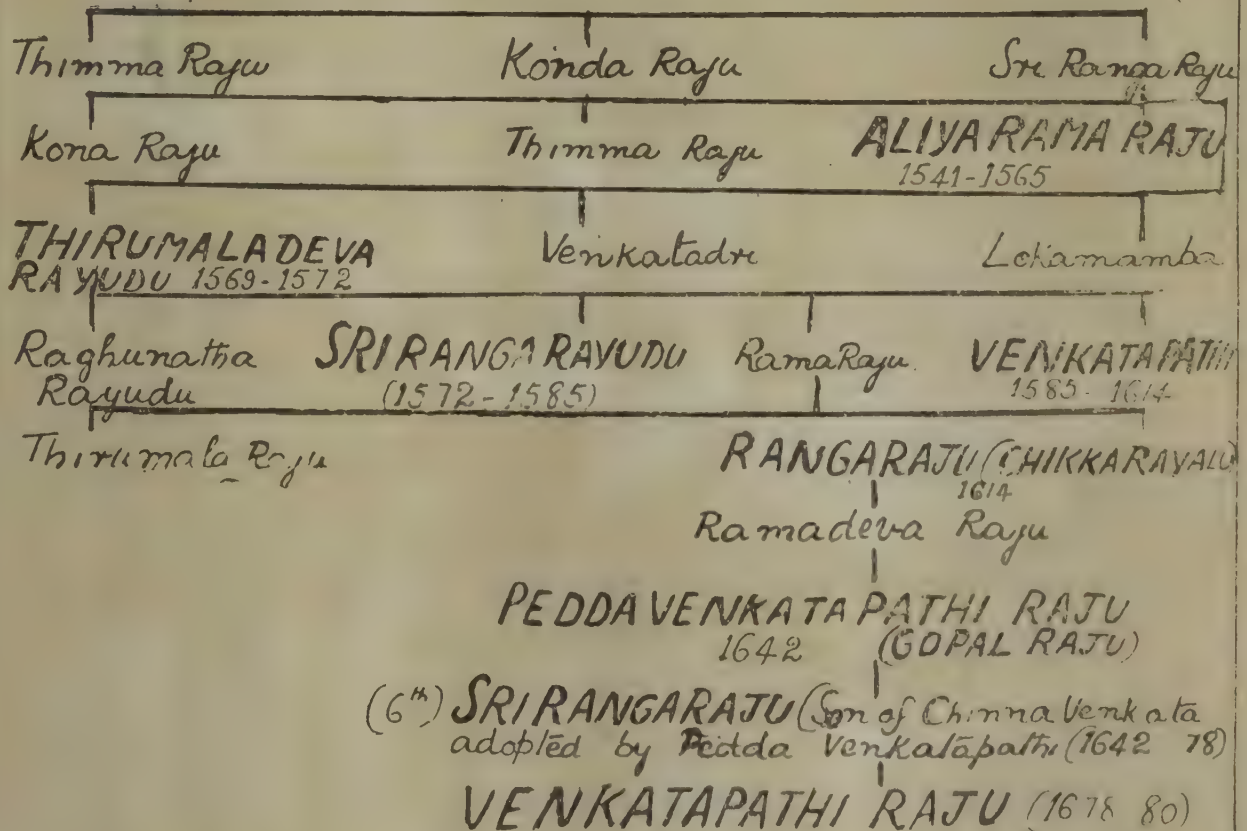 Thimma Raju Konda Raju Sri Ranga Raju
Kona Raju Thimma Raju ALIYA RAMA RAJU
1541-1565
THIRUMALADEVA Venkatadri Lokamamba
RAYUDU 1569-1572
Raghunatha SRI RANGA RAYUDU Rama Raju. VENKATAPATHI
Rayudu (1572-1585) 1585-1614
Thirumala Raju RANGARAJU (CHIKKARAYALU)
1614
Ramadeva Raju
PEDDAVENKATAPATHI RAJU
1642 (GOPAL RAJU)
(6th) SRIRANGARAJU (Son of Chinna Venkata
adopted by Pedda Venkatāpathi (1642 78)
VENKATAPATHI RAJU (1678 80)